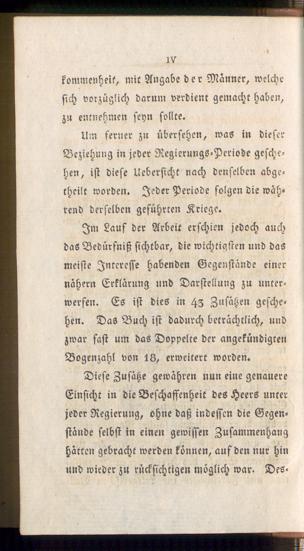 IV
kommenheit, mit Angabe der Männer, welche
sich vorzüglich darum verdient gemacht haben,
zu entnehmen seyn sollte.
Um ferner zu übersehen, was in dieser
Beziehung in jeder Regierungs-Periode gesche-
hen, ist diese Uebersicht nach denselben abge-
theilt worden. Jeder Periode folgen die wäh-
rend derselben geführten Kriege.
Im Lauf der Arbeit erschien jedoch auch
das Bedürfniß sichtbar, die wichtigsten und das
meiste Interesse habenden Gegenstände einer
nähern Erklärung und Darstellung zu unter-
werfen. Es ist dies in 43 Zusätzen gesche-
hen. Das Buch ist dadurch beträchtlich, und
zwar fast um das Doppelte der angekündigten
Bogenzahl von 18, erweitert worden.
Diese Zusätze gewähren nun eine genauere
Einsicht in die Beschaffenheit des Heers unter
jeder Regierung, ohne daß indessen die Gegen-
stände selbst in einen gewissen Zusammenhang
hätten gebracht werden können, auf den nur hin
und wieder zu rücksichtigen möglich war. Des-